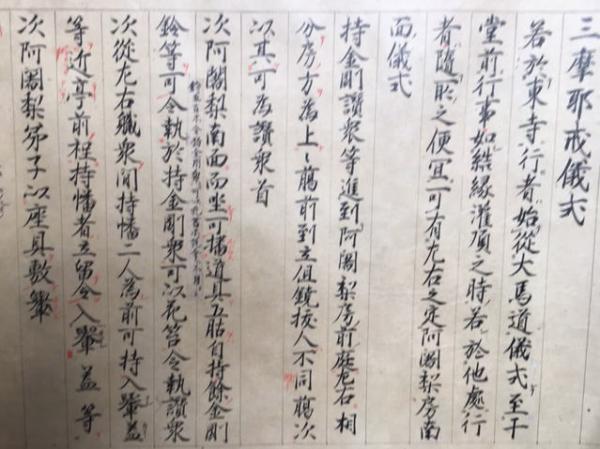 三摩耶戒儀式
若於東寺行者始從大馬道儀式至于
堂前行事如結緣灌頂之時若於他處行
者隨所之便宜可有左右之定阿闍梨房南
面儀式
持金剛讚衆等進到阿闍梨房前庭左右相
分房方為上〻臈前到立但鏡扙人不同臈次
以其可為讚衆首
次阿闍梨南面而坐可播道具五䏦自持餘金剛
鈴等可令執於持金剛衆可以花筥令執讚衆
次從左右軄衆間持幡二人為前可持入輦盖
等近亭前程持幡者立留令入輦盖等
次阿闍梨苐子以座具敷輦